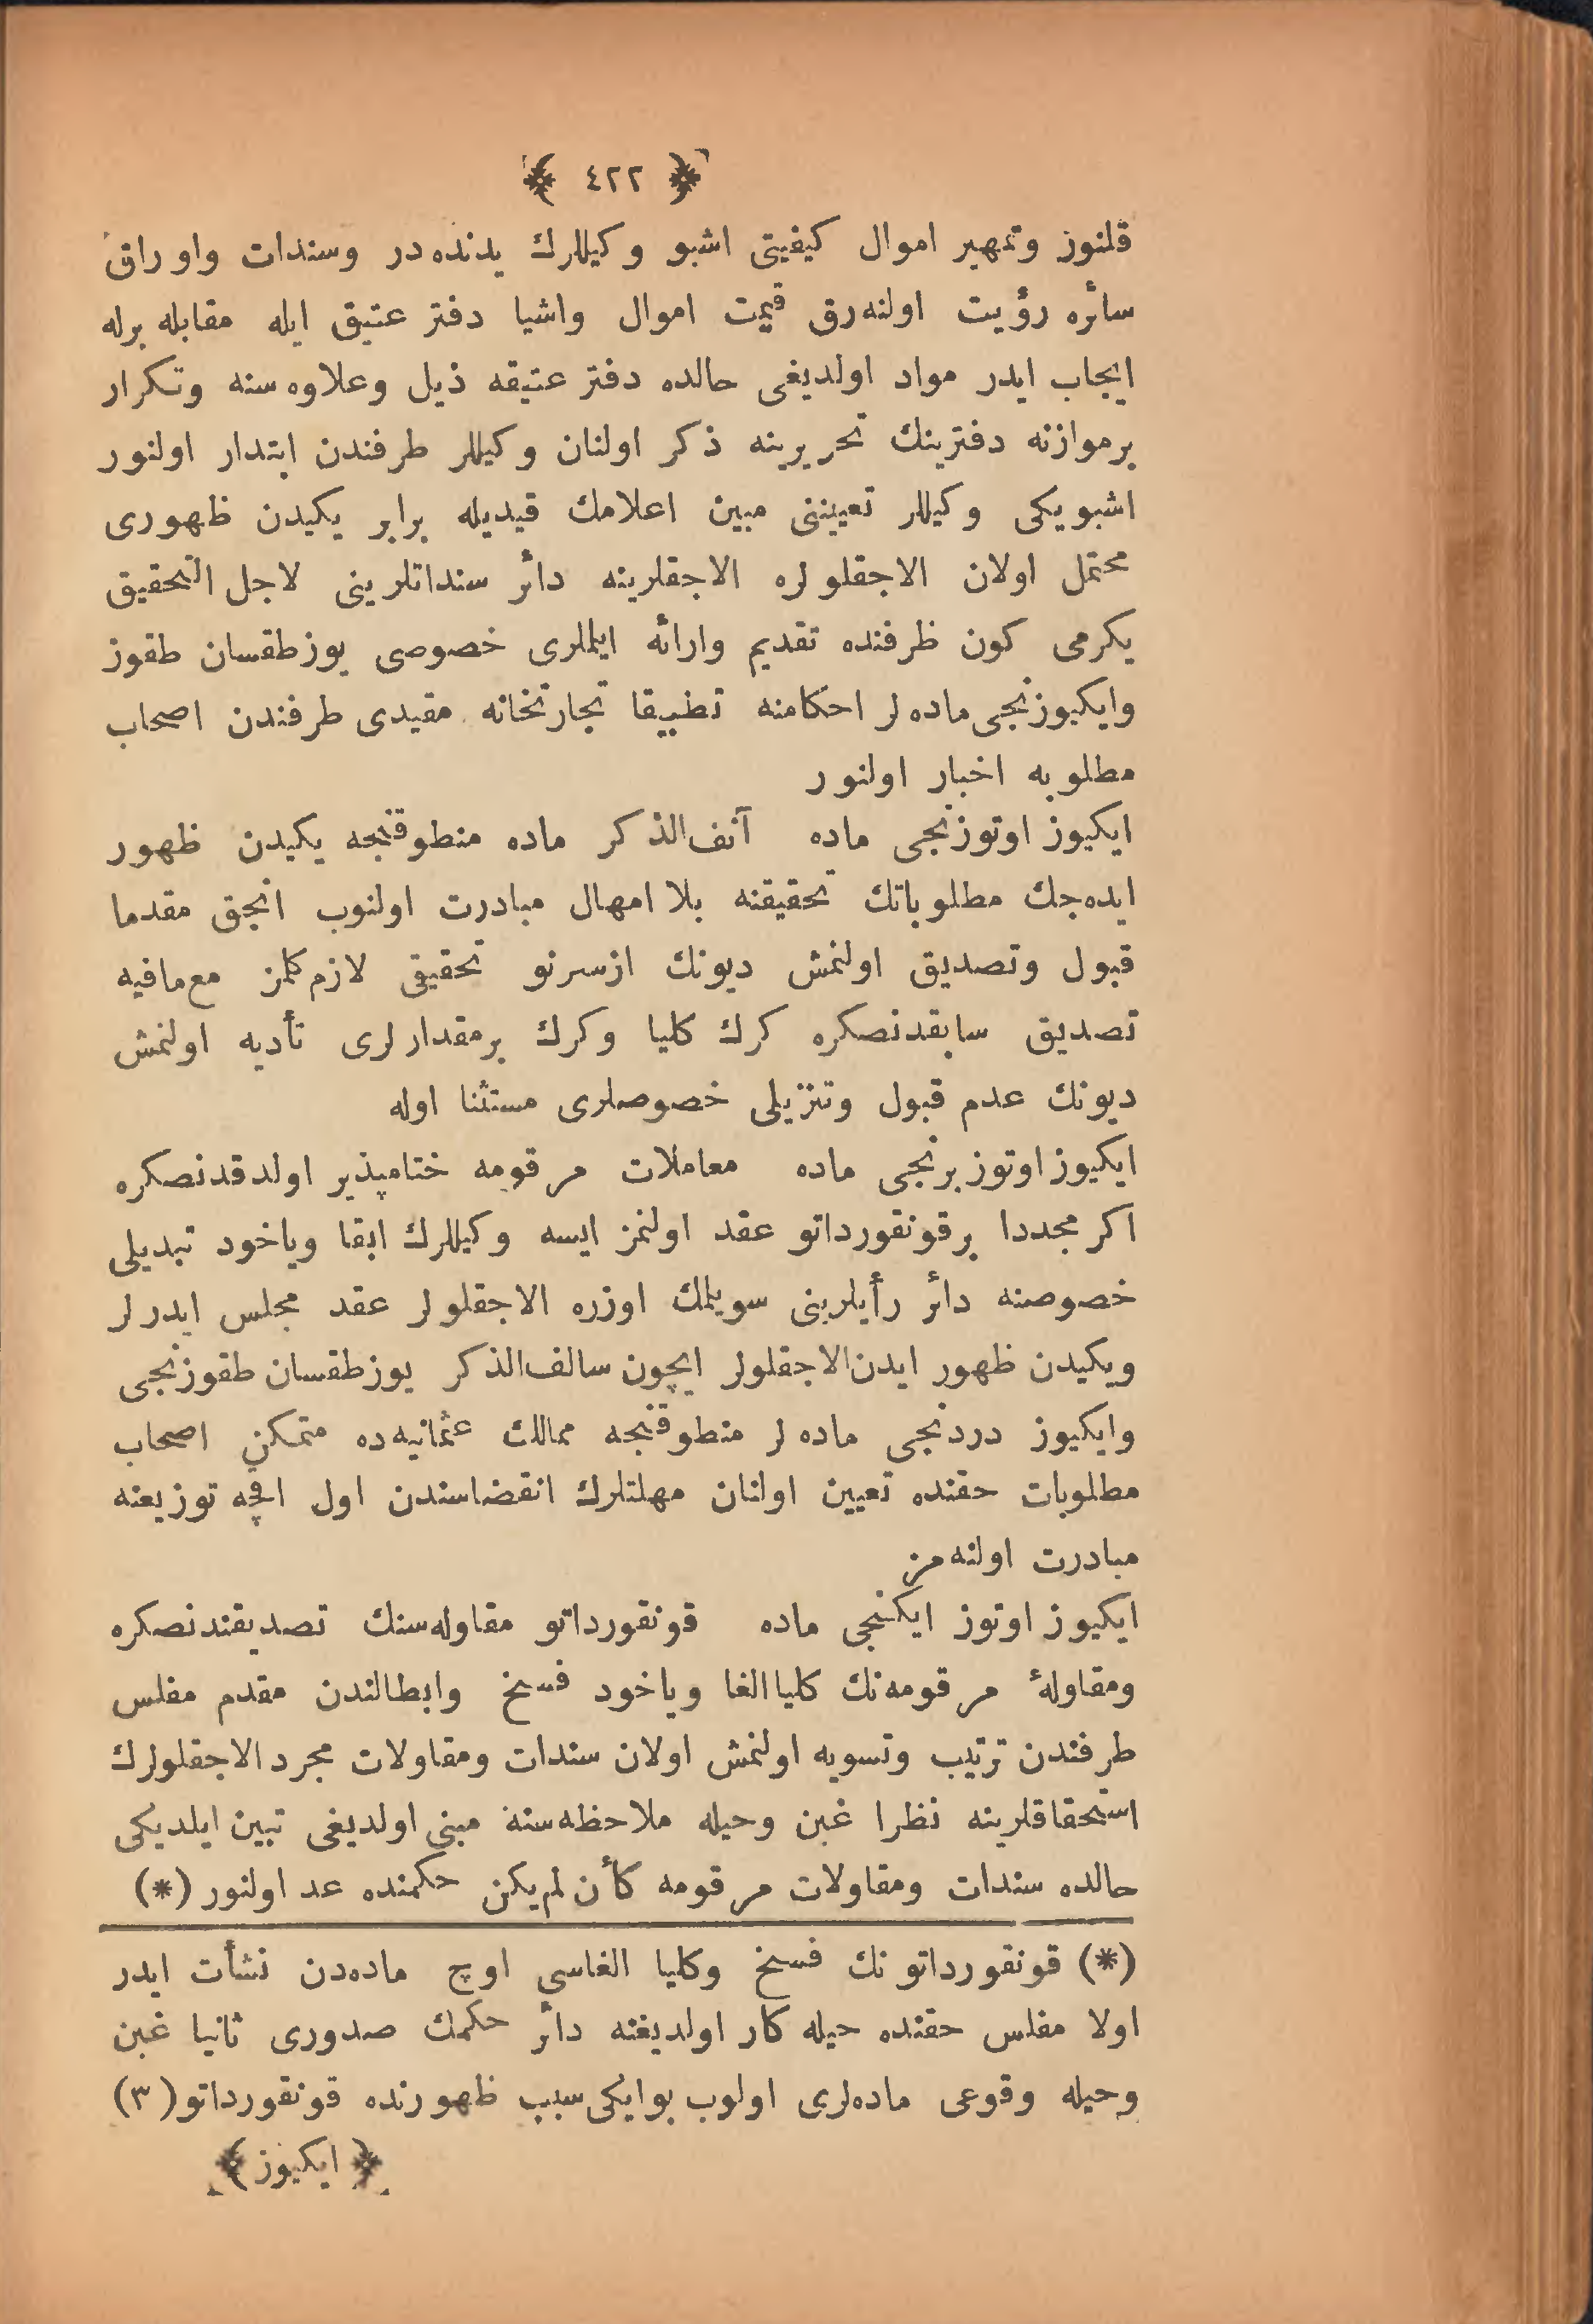 ﴿ ٤٢٢ ﴾
قلنوز وتمهير اموال كيفيتى اشبو وكيللرك يدنده در وسندات واوراق
سائره رؤيت اولنه رق قيمت اموال واشيا دفتر عتيق ايله مقابله برله
ايجاب ايدر مواد اولديغى حالده دفتر عتيقه ذيل وعلاوه سنه وتكرار
برموازنه دفترينك تحريرينه ذكر اولنان وكيللر طرفندن ابتدار اولنور
اشبويكى وكيللر تعيينى مبين اعلامك قيديله برابر يكيدن ظهورى
محتمل اولان الاجقلولره الاجقلرينه دائر سنداتلرينى لاجل التحقيق
يكرمى كون ظرفنده تقديم وارائه ايللرى خصوصى يوزطقسان طقوز
وايكيوزنجى ماده لر احكامنه تطبيقا تجارتخانه مقيدى طرفندن اصحاب
مطلوبه اخبار اولنور
ايكيوز اوتوزنجى ماده آنف الذكر ماده منطوقنجه يكيدن ظهور
ايده جك مطلوباتك تحقيقنه بلا امهال مبادرت اولنوب انجق مقدما
قبول وتصديق اولنمش ديونك ازسرنو تحقيقى لازم كلمز مع مافيه
تصديق سابقدنصكره كرك كليا وكرك برمقدارلرى تأديه اولنمش
ديونك عدم قبول وتنزيلى خصوصلرى مستثنا اوله
ايكيوز اوتوز برنجى ماده معاملات مرقومه ختامپذير اولدقدنصكره
اكر مجددا برقونقورداتو عقد اولنمز ايسه وكيللرك ابقا وياخود تبديلى
خصوصنه دائر رأيلرينى سويلمك اوزره الاجقلولر عقد مجلس ايدرلر
ويكيدن ظهور ايدن الاجقلولر ايچون سالف الذكر يوزطقسان طقوزنجى
وايكيوز دردنجى ماده لر منطوقنجه ممالك عثمانيه ده متمكن اصحاب
مطلوبات حقنده تعيين اولنان مهلتلرك انقضاسندن اول اقچه توزيعنه
مبادرت اولنه مز
ايكيوز اوتوز ايكنجى ماده قونقورداتو مقاوله سنك تصديقندنصكره
ومقاولهٔ مرقومه نك كليا الغا وياخود فسخ وابطالندن مقدم مفلس
طرفندن ترتيب وتسويه اولنمش اولان سندات ومقاولات مجرد الاجقلولرك
استحقاقلرينه نظرا غبن وحيله ملاحظه سنه مبنى اولديغى تبين ايلديكى
حالده سندات ومقاولات مرقومه كأن لم يكن حكمنده عد اولنور (*)
(*) قونقورداتو نك فسخ وكليا الغاسى اوچ ماده دن نشأت ايدر
اولا مفلس حقنده حيله كار اولديغنه دائر حكمك صدورى ثانيا غبن
وحيله وقوعى ماده لرى اولوب بوايكى سبب ظهورنده قونقورداتو (٣)
﴿ ايكيوز ﴾